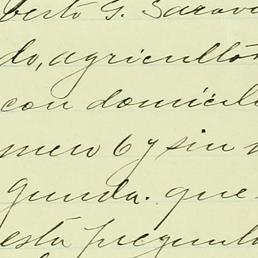 berto G. Sarav
do, agricultor
con domicil
mero 6 y sin n
gunda. que
esta pregunt